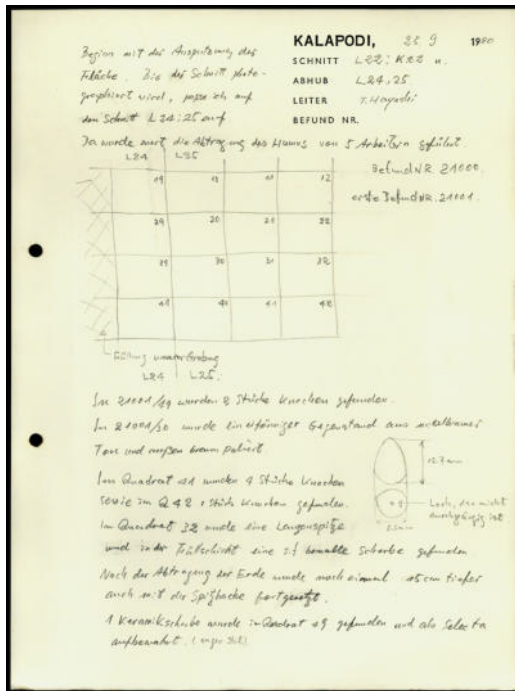 KALAPODI, 25.9 1980
SCHNITT L22; K22 u.
ABHUB L24,25.
LEITER T. Hayashi
BEFUND NR.
Beginn mit der Ausputzung der
Fläche. Bis der Schnitt photo-
graphiert wird, passe ich auf
den Schnitt L24;25 auf
Da wurde zuerst die Abtragung des Humus von 5 Arbeitern geführt.
Befund NR. 21000.
erste Befund NR. 21001.
L24 L25
19 12
29 20 21 22
30 31 32
41 42
Füllung
L24 L25.
In 21001/49 wurden 2 Stücke Knochen gefunden.
In 21001/30 wurde ein eiförmiger Gegenstand aus
Ton und außen braun poliert
2.7 cm
Loch, das nicht
durchgängig ist.
Im Quadrat 41 wurden 4 Stücke Knochen
sowie im Q 42 1 Stück Knochen gefunden.
Im Quadrat 32 wurde eine Lanzenspitze
und in der eine bemalte Scherbe gefunden
Nach der Abtragung der Erde wurde noch einmal 15 cm tiefer
auch mit der Spitzhacke fortgesetzt.
1 Keramikscherbe wurde in Quadrat 49 gefunden und als Selecta
aufbewahrt.